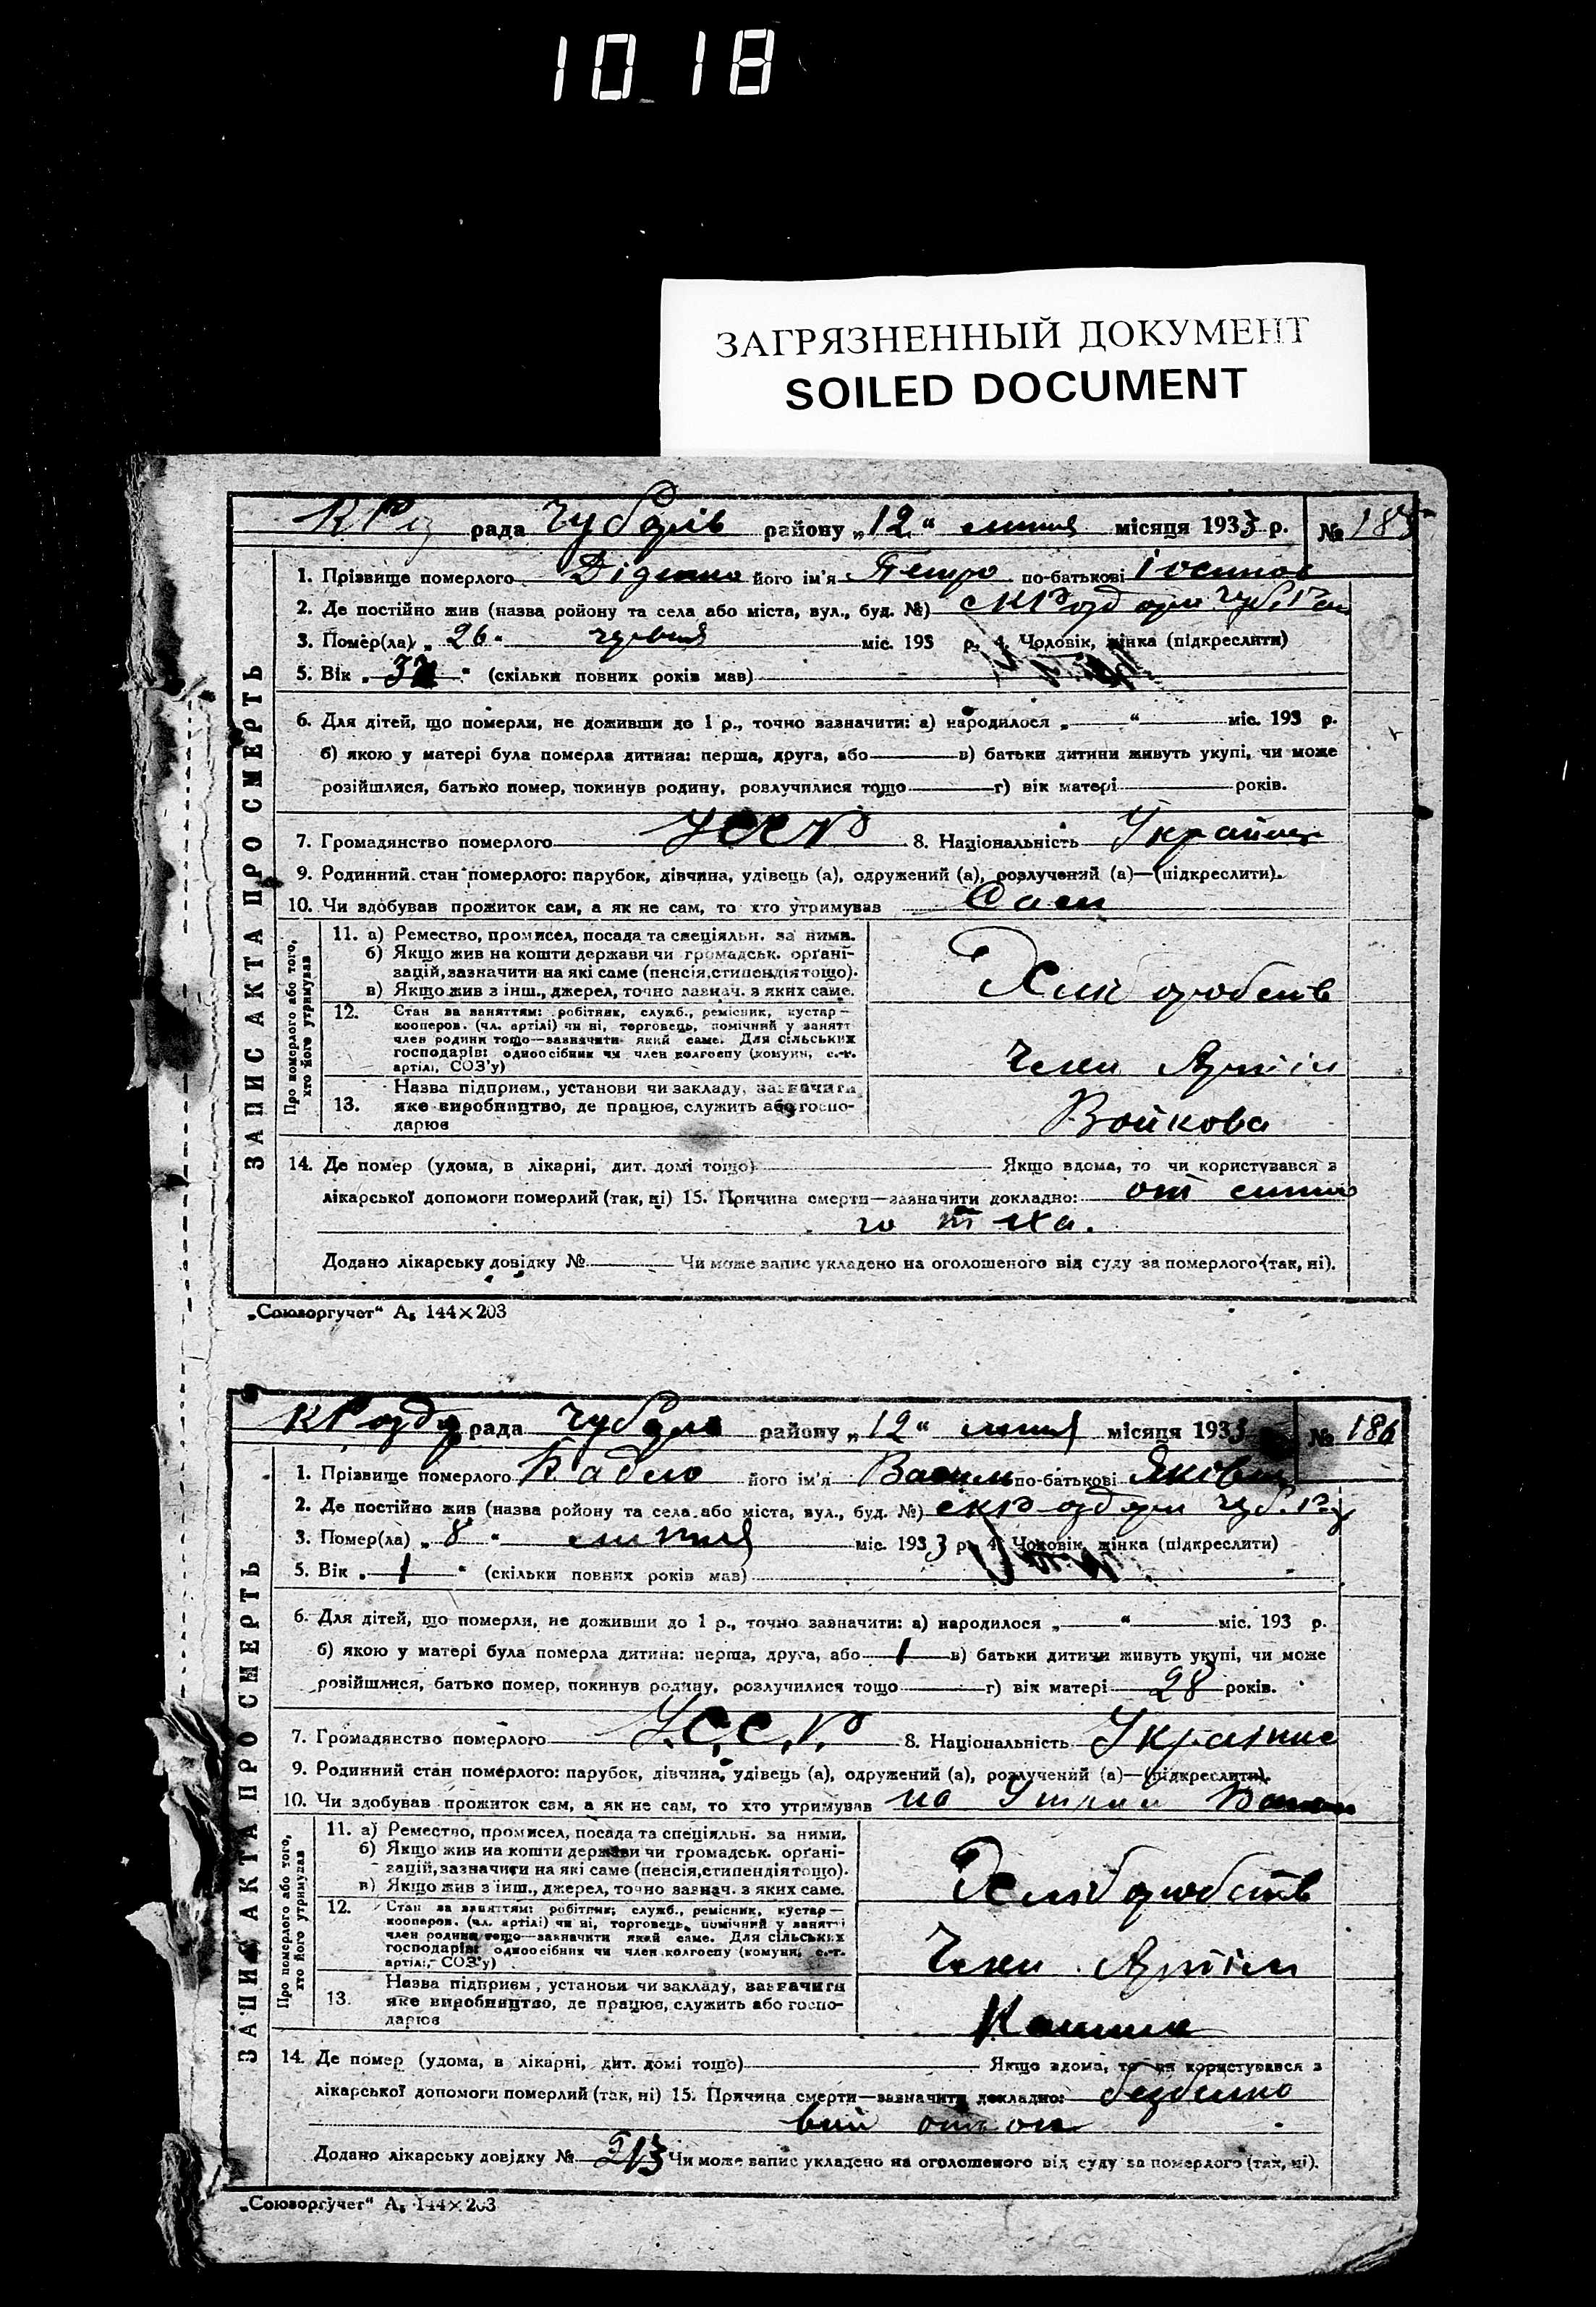 10 18
ЗАГРЯЗНЕННЫЙ ДОКУМЕНТ
SOILED DOCUMENT
рада района „12“ липня місяця 1933 р. № 185
ЗАПИС АКТА ПРО СМЕРТЬ
1. Прізвище померлого його ім'я Петро по-батькові
2. Де постійно жив (назва ройону та села або міста, вул., буд. №)
3. Помер(ла) „26“ червня міс. 193 р. 4. Чоловік, жінка (підкреслити)
5. Вік „ “ (скільки повних років мав)
6. Для дітей, що померли, не доживши до 1 р., точно зазначити: а) народилося „ “ міс. 193 р.
б) якою у матері була померла дитина: перша, друга, або в) батьки дитини живуть укупі, чи може
розійшлися, батько помер, покинув родину, розлучилися тощо г) вік матері років.
7. Громадянство померлого УССР 8. Національність Украинец
9. Родинний стан померлого: парубок, дівчина, удівець (а), одружений (а), розлучений (а)—(підкреслити).
10. Чи здобував прожиток сам, а як не сам, то хто утримував Сам
Про померлого або того, хто його утримував
11. а) Ремество, промисел, посада та спеціяльн. за ними.
б) Якщо жив на кошти держави чи громадськ. орґані-
зацій, зазначити на які саме (пенсія, стипендія тощо).
в) Якщо жив з інш., джерел, точно зазнач. з яких саме.
12. Стан за заняттям: робітник, служб., ремісник, кустар—
кооперов. (чл. артілі) чи ні, торговець, помічний у занятт
член родини тощо—зазначити який саме. Для сільських
господарів: одноосібник чи член колгоспу (комуни, с.-г.
артілі, СОЗ'у)
Член Артіли
Назва підприєм., установи чи закладу, зазначити
13. яке виробництво, де працює, служить або госпо-
дарює
Войкова
14. Де помер (удома, в лікарні, дит. домі тощо) Якщо вдома, то чи користувався з
лікарської допомоги померлий (так, ні) 15. Причина смерти—зазначити докладно: от
Додано лікарську довідку № Чи може запис укладено на оголошеного від суду за померлого (так, ні).
„Союзоргучет“ А₅ 144×203
рада района „12“ липня місяця 1933 № 186
ЗАПИС АКТА ПРО СМЕРТЬ
1. Прізвище померлого його ім'я Василь по-батькові
2. Де постійно жив (назва ройону та села або міста, вул., буд. №)
3. Помер(ла) „8“ липня міс. 1933 р. 4. Чоловік, жінка (підкреслити)
5. Вік „1“ (скільки повних років мав)
6. Для дітей, що померли, не доживши до 1 р., точно зазначити: а) народилося „ “ міс. 193 р.
б) якою у матері була померла дитина: перша, друга, або 1 в) батьки дитини живуть укупі, чи може
розійшлися, батько помер, покинув родину, розлучилися тощо г) вік матері 28 років.
7. Громадянство померлого У.С.С.Р. 8. Національність
9. Родинний стан померлого: парубок, дівчина, удівець (а), одружений (а), розлучений (а)—(підкреслити).
10. Чи здобував прожиток сам, а як не сам, то хто утримував на
Про померлого або того, хто його утримував
11. а) Ремество, промисел, посада та спеціяльн. за ними.
б) Якщо жив на кошти держави чи громадськ. орґані-
зацій, зазначити на які саме (пенсія, стипендія тощо).
в) Якщо жив з інш., джерел, точно зазнач. з яких саме.
12. Стан за заняттям: робітник, служб., ремісник, кустар—
кооперов. (чл. артілі) чи ні, торговець, помічний у занятті
член родини тощо—зазначити який саме. Для сільських
господарів: одноосібник чи член колгоспу (комуни, с.-г.
артілі, СОЗ'у)
Член Артіли
Назва підприєм., установи чи закладу, зазначити
13. яке виробництво, де працює, служить або госпо-
дарює
14. Де помер (удома, в лікарні, дит. домі тощо) Якщо вдома, то чи користувався з
лікарської допомоги померлий (так, ні) 15. Причина смерти—зазначити докладно:
Додано лікарську довідку № Чи може запис укладено на оголошеного від суду за померлого (так, ні).
„Союзоргучет“ А₅ 144×203